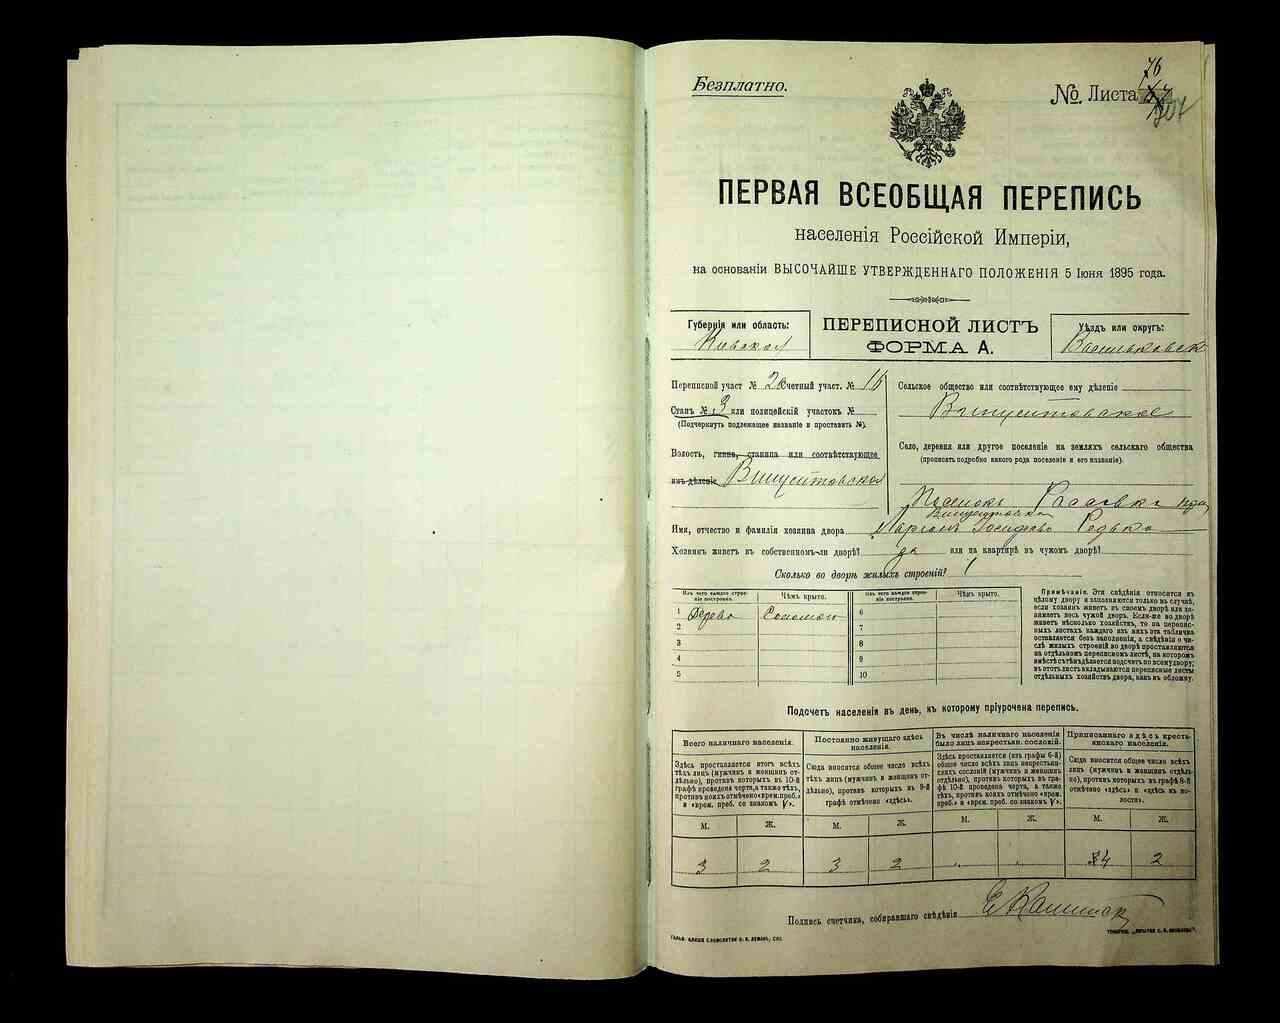 Безплатно.
№ Листа 76
ПЕРВАЯ ВСЕОБЩАЯ ПЕРЕПИСЬ
населенія Россійской Имперіи,
на основаніи ВЫСОЧАЙШЕ УТВЕРЖДЕННАГО ПОЛОЖЕНІЯ 5 Іюня 1895 года.
Губернія или область:
Кіевская
ПЕРЕПИСНОЙ ЛИСТЪ
ФОРМА А.
Уѣздъ или округъ:
Васильковск
Переписной участ № 2 Счетный участ. № 16
Станъ № 3 или полицейскій участокъ №
(Подчеркнуть подлежащее названіе и проставить №).
Волость, гмина, станица или соотвѣтствующее
имъ дѣленіе Винцентовская
Сельское общество или соотвѣтствующее ему дѣленіе
Винцентовское
Село, деревня или другое поселеніе на земляхъ сельскаго общества
(прописать подробно какого рода поселеніе и его названіе).
Имя, отчество и фамилія хозяина двора Марьянъ Іосифовъ Редько
Хозяинъ живетъ въ собственномъ-ли дворѣ? да или на квартирѣ въ чужомъ дворѣ?
Сколько во дворѣ жилыхъ строеній? 1
Изъ чего каждое строеніе построено.
Чѣмъ крыто.
Изъ чего каждое строеніе построено.
Чѣмъ крыто.
1 Дерево Соломою
2
3
4
5
6
7
8
9
10
Примѣчаніе. Эти свѣдѣнія относятся къ
цѣлому двору и заполняются только въ случаѣ,
если хозяинъ живетъ въ своемъ дворѣ или занимаетъ весь чужой дворъ. Если-же во дворѣ
живетъ нѣсколько хозяйствъ, то на переписныхъ листахъ каждаго изъ нихъ эта табличка
оставляется безъ заполненія, а свѣдѣнія о числѣ жилыхъ строеній во дворѣ проставляются
на отдѣльномъ переписномъ листѣ, на которомъ
вмѣстѣ съ тѣмъ дѣлается подсчетъ по всему двору;
въ этотъ листъ вкладываются переписные листы
отдѣльныхъ хозяйствъ двора, какъ въ обложку.
Подсчетъ населенія въ день, къ которому пріурочена перепись.
Всего наличнаго населенія.
Здѣсь проставляется итогъ всѣхъ
тѣхъ лицъ (мужчинъ и женщинъ отдѣльно), противъ которыхъ въ 10-й
графѣ проведена черта, а также тѣхъ,
противъ коихъ отмѣчено «врем. преб.»
и «врем. преб. со знакомъ V».
Постоянно живущаго здѣсь
населенія.
Сюда вносится общее число всѣхъ
тѣхъ лицъ (мужчинъ и женщинъ отдѣльно), противъ которыхъ въ 9-й
графѣ отмѣчено «здѣсь».
Въ числѣ наличнаго населенія
было лицъ некрестьян. сословій.
Здѣсь проставляется (изъ графы 6-й)
общее число всѣхъ лицъ некрестьянскихъ сословій (мужчинъ и женщинъ
отдѣльно), противъ которыхъ въ графѣ 10-й проведена черта, а также
тѣхъ, противъ коихъ отмѣчено «врем.
преб.» и «врем. преб. со знакомъ V».
Приписаннаго здѣсь крестьянскаго населенія.
Сюда вносится общее число всѣхъ
лицъ (мужчинъ и женщинъ отдѣльно), противъ которыхъ въ графѣ 8-й
отмѣчено «здѣсь» и «здѣсь въ волости».
М. Ж. М. Ж. М. Ж. М. Ж.
3 2 3 2 „ „ 4 2
Подпись счетчика, собиравшаго свѣдѣнія